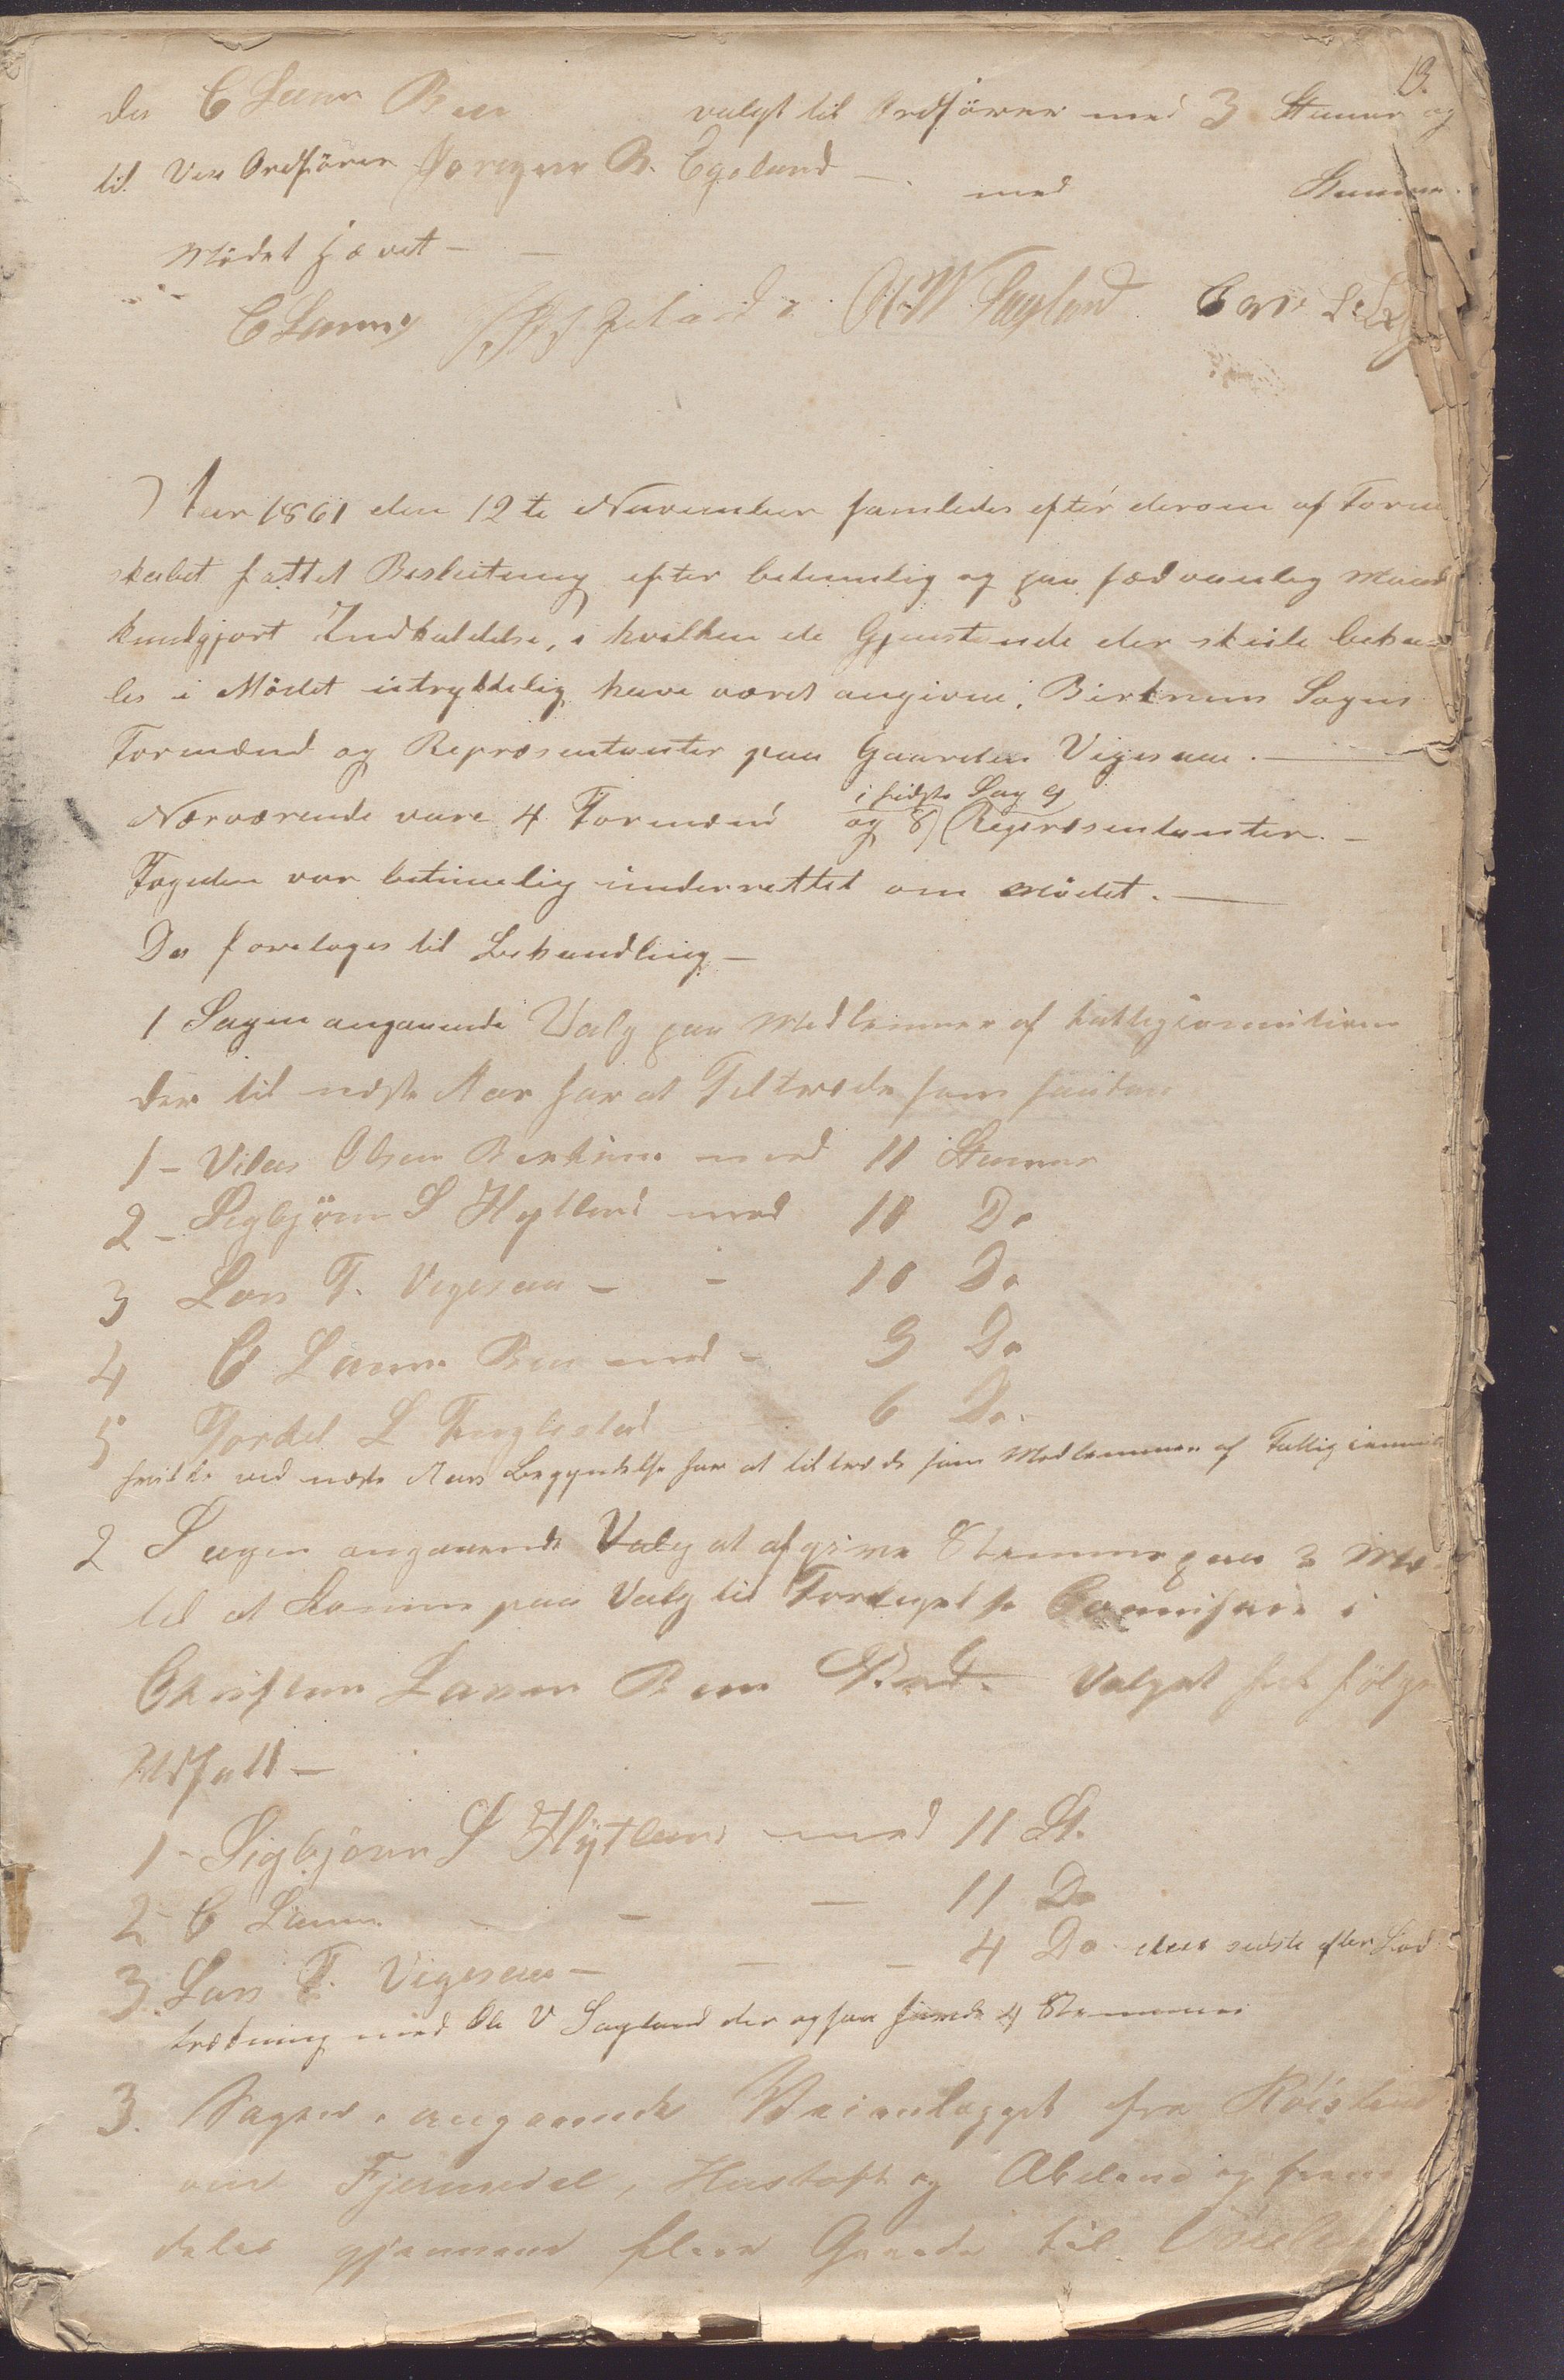 13.
der C Laune Bue valgt til Ordförer med 3 Stemer og
til Vise Ordförer Jörgen B. Egeland med Stemmer.
Mödet hævet —
C Laune O W Sagland
Aar 1861 den 12te November samledes efter derom af Form
skabet fattet Beslutning efter betimelig og paa sædvanlig Maade
kundgjort Indkaldelse, i hvilken de Gjenstande der skule behand
les i Mödet udtrykkelig have været angivne, Birkrems Sogns
Formænd og Repræsentanter paa Gaarden Vigesaae. —
i sidste Sag 9
Nærværende vare 4 Formænd og 8 Repræsentanter. —
Fogeden var betimelig underrettet om Mödet. —
Da foretoges til Behandling —
1 Sagen angaaende Valg paa Medlemmer af Fattigcomitionen
der til næste Aar har at Tiltræde som saadan
1 - Vilas Olsen Berkrim med 11 Stemmer
2 - Sigbjörn S Hytland med 10 Do
3 Lars T. Vigesaa — - 10 Do
4 C Laune Bue med - 9 Do
5 Tordel L Tengelsted 6 Do.
hvilke ved næste Aars Begyndelse har at tiltræde som Medlemmer af Fattigcommis
2 Sagen angaaende Valg at afgive Stemme paa 3 Mæ
til at komme paa Valg til Forligelse Commisair i
Christen Laune Bue Sted. Valget fik følge
Udfald —
1 - Sigbjörn S Hÿtland med 11 St.
2 - C Laune — — 11 Do
3 Lars T. Vigesaa — — - 4 Do den sidste efter Lod
trækning med Ole V Sagland der ogsaa havde 4 Stemmer
3. Sagen angaaende Veianlægget fra Röisland
over Fjermedal, Hustoft og Æveland og frem
deles gjennem flere Gaarde til